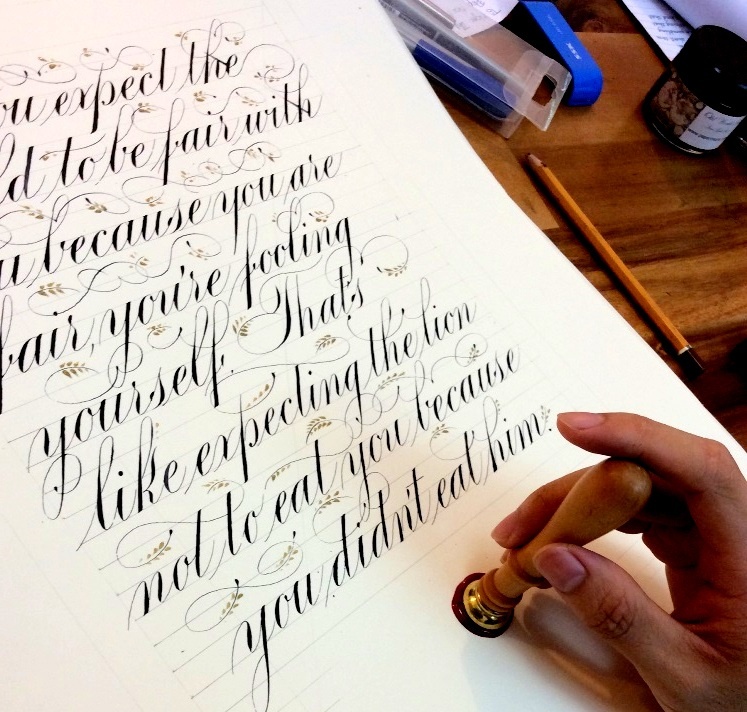 ou expect the
ld to be fair with
u because you are
fair, you're fooling
yourself. That's
like expecting the lion
not to eat you because
you didn't eat him.